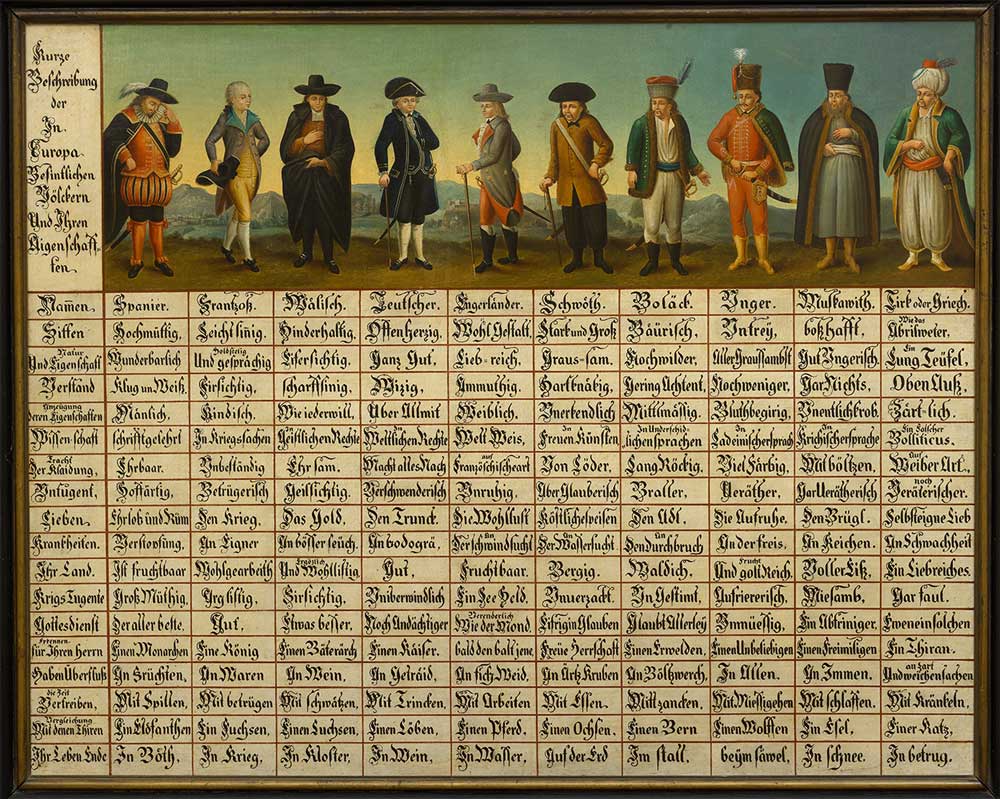 Kurze
Beschreibung
der
In
Europa
Befintlichen
Völckern
Und Ihren
Aigenschaff-
ten.
Namen. Spanier. Frantzoß. Wälisch. Teutscher. Engerländer. Schwöth. Boläck. Unger. Muskawith. Tirk oder Griech.
Sitten Hochmüttig, Leicht sinig, Hinderhaltig, Offen Herzig, Wohl Gestalt, Stark und Groß Bäurisch, Untrey, boßhafft, Wie das Abrilweter.
Natur Und Eigenschaft Wunderbarlich Holdseelig Und gesprächig Eifersichtig, Ganz Gut, Lieb-reich, Graus-sam, Nochwilder, Aller Graussambst Gut Ungerisch, Ein Lung Teüfel,
Verständ Klug un Weiß, Firsichtig, scharffsinig, Wizig, Ammuthig, Hartknäbig, Gering Achtent, Nochweniger, Gar Nichts, Oben Auß,
Anzeügung deren Eigenschaften Mänlich, Kindisch, Wie iederwill, Über Allmit Weiblich, Unerkendlich Mittlmässig, Bluthbegirig, Unentlichkrob, Zärt-lich.
Wissenschaft schrifftgelehrt In Kriegssachen In Geistlichen Rechte In Weltlichen Rechte Welt Weis, In Freuen Künsten, In Underschid- lichen sprachen, In Ladeinischersprach In Krichischersprache Ein Falscher Bollitícus.
Tracht Der Klaidung, Ehrbar. Unbeständig Ehrsam. Macht alles Nach auf Französchischeart Von Löder, Lang Röckig, Viel Färbig, Mit böltzen, Auf Weiber Art,
Untugent, Hoffärtig, Betrügerisch Geillsichtig, Verschwenderisch Unruhig, Über Glauberisch Braller, Veräther, Gar Verätherisch noch Veräterischer.
Lieben. Ehrlob und Rüm Den Krieg. Das Gold, Den Trunck. Die Wohllust Köstlichespeisen Den Adl. Die Aufruhe. Den Brügl. Selbsteigne Lieb
Krankheiten. Verstopfung, An Eigner An bösser seüch, An bodogrä, An Der schwindsucht An Der Wassersucht An Den durchbruch An der freis, An Keichen. An Schwachheit
Ihr Land. Ist fruchtbaar Wohlgearbeith Ergözlich Und Wohllistig Gut, Fruchtbaar. Bergig. Waldich. Frucht Und golt Reich. Voller Eiß, Ein Liebreiches.
Krigs Tugente Groß Müthig, Arg listig, Firsichtig, Uniberwindlich Ein See Held. Unverzackt. Un Gestimt, Aufriererisch, Miesamb, Gar faul.
Gottesdienst Der aller beste. Gut, Etwas besser, Noch Andächtiger Verenderlich Wie der Mond. Eifrig in Glauben Glaubt Allerley Unmüessig, Ein Abtriniger, Eweneinsolchen
Erkennen für Ihren herrn Einen Monarchen Eine König Einen Bäterärch Einen Kaiser. bald den balt jene Freüe Herrschaft Einen Erwelden, Einen Unbeliebigen Einen Freimiligen Ein Thiran.
Haben Überfluß In Früchten, An Waren An Wein, An Geträid, An fich Weid, An Ärtz Kruben An Böltzwerch, In Allen. An Immen, an Zart Und weichen sachen
die Zeit Vertreiben, Mit Spillen, Mit betrügen Mit schwätzen, Mit Trincken, Mit Arbeiten Mit Essen, Mit zancken, Mit Miessigehen Mit schlaffen. Mit Kränkeln,
Vergleichung Mit denen Thiren Ein Elofanthen Ein Fuchsen, Einen Luchsen, Einen Löben, Einen Pferd. Einen Ochsen. Einen Bern Einen Wolffen Ein Esel, Einer Katz,
Ihr Leben Ende In Böth, In Krieg, In Kloster, In Wein, In Wasser, Auf der Erd Im stall, beÿm säwel, In schnee. In betrug.